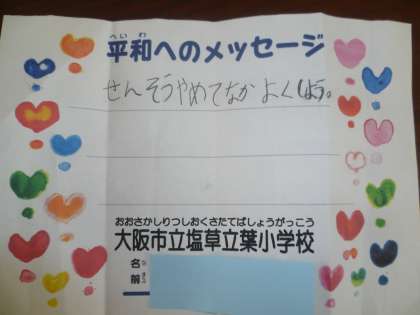 へいわ
平和へのメッセージ
せんそうやめてなかよくしよう。
おおさかしりつしおくさたてばしょうがっこう
大阪市立塩草立葉小学校
名 な
前 まえ